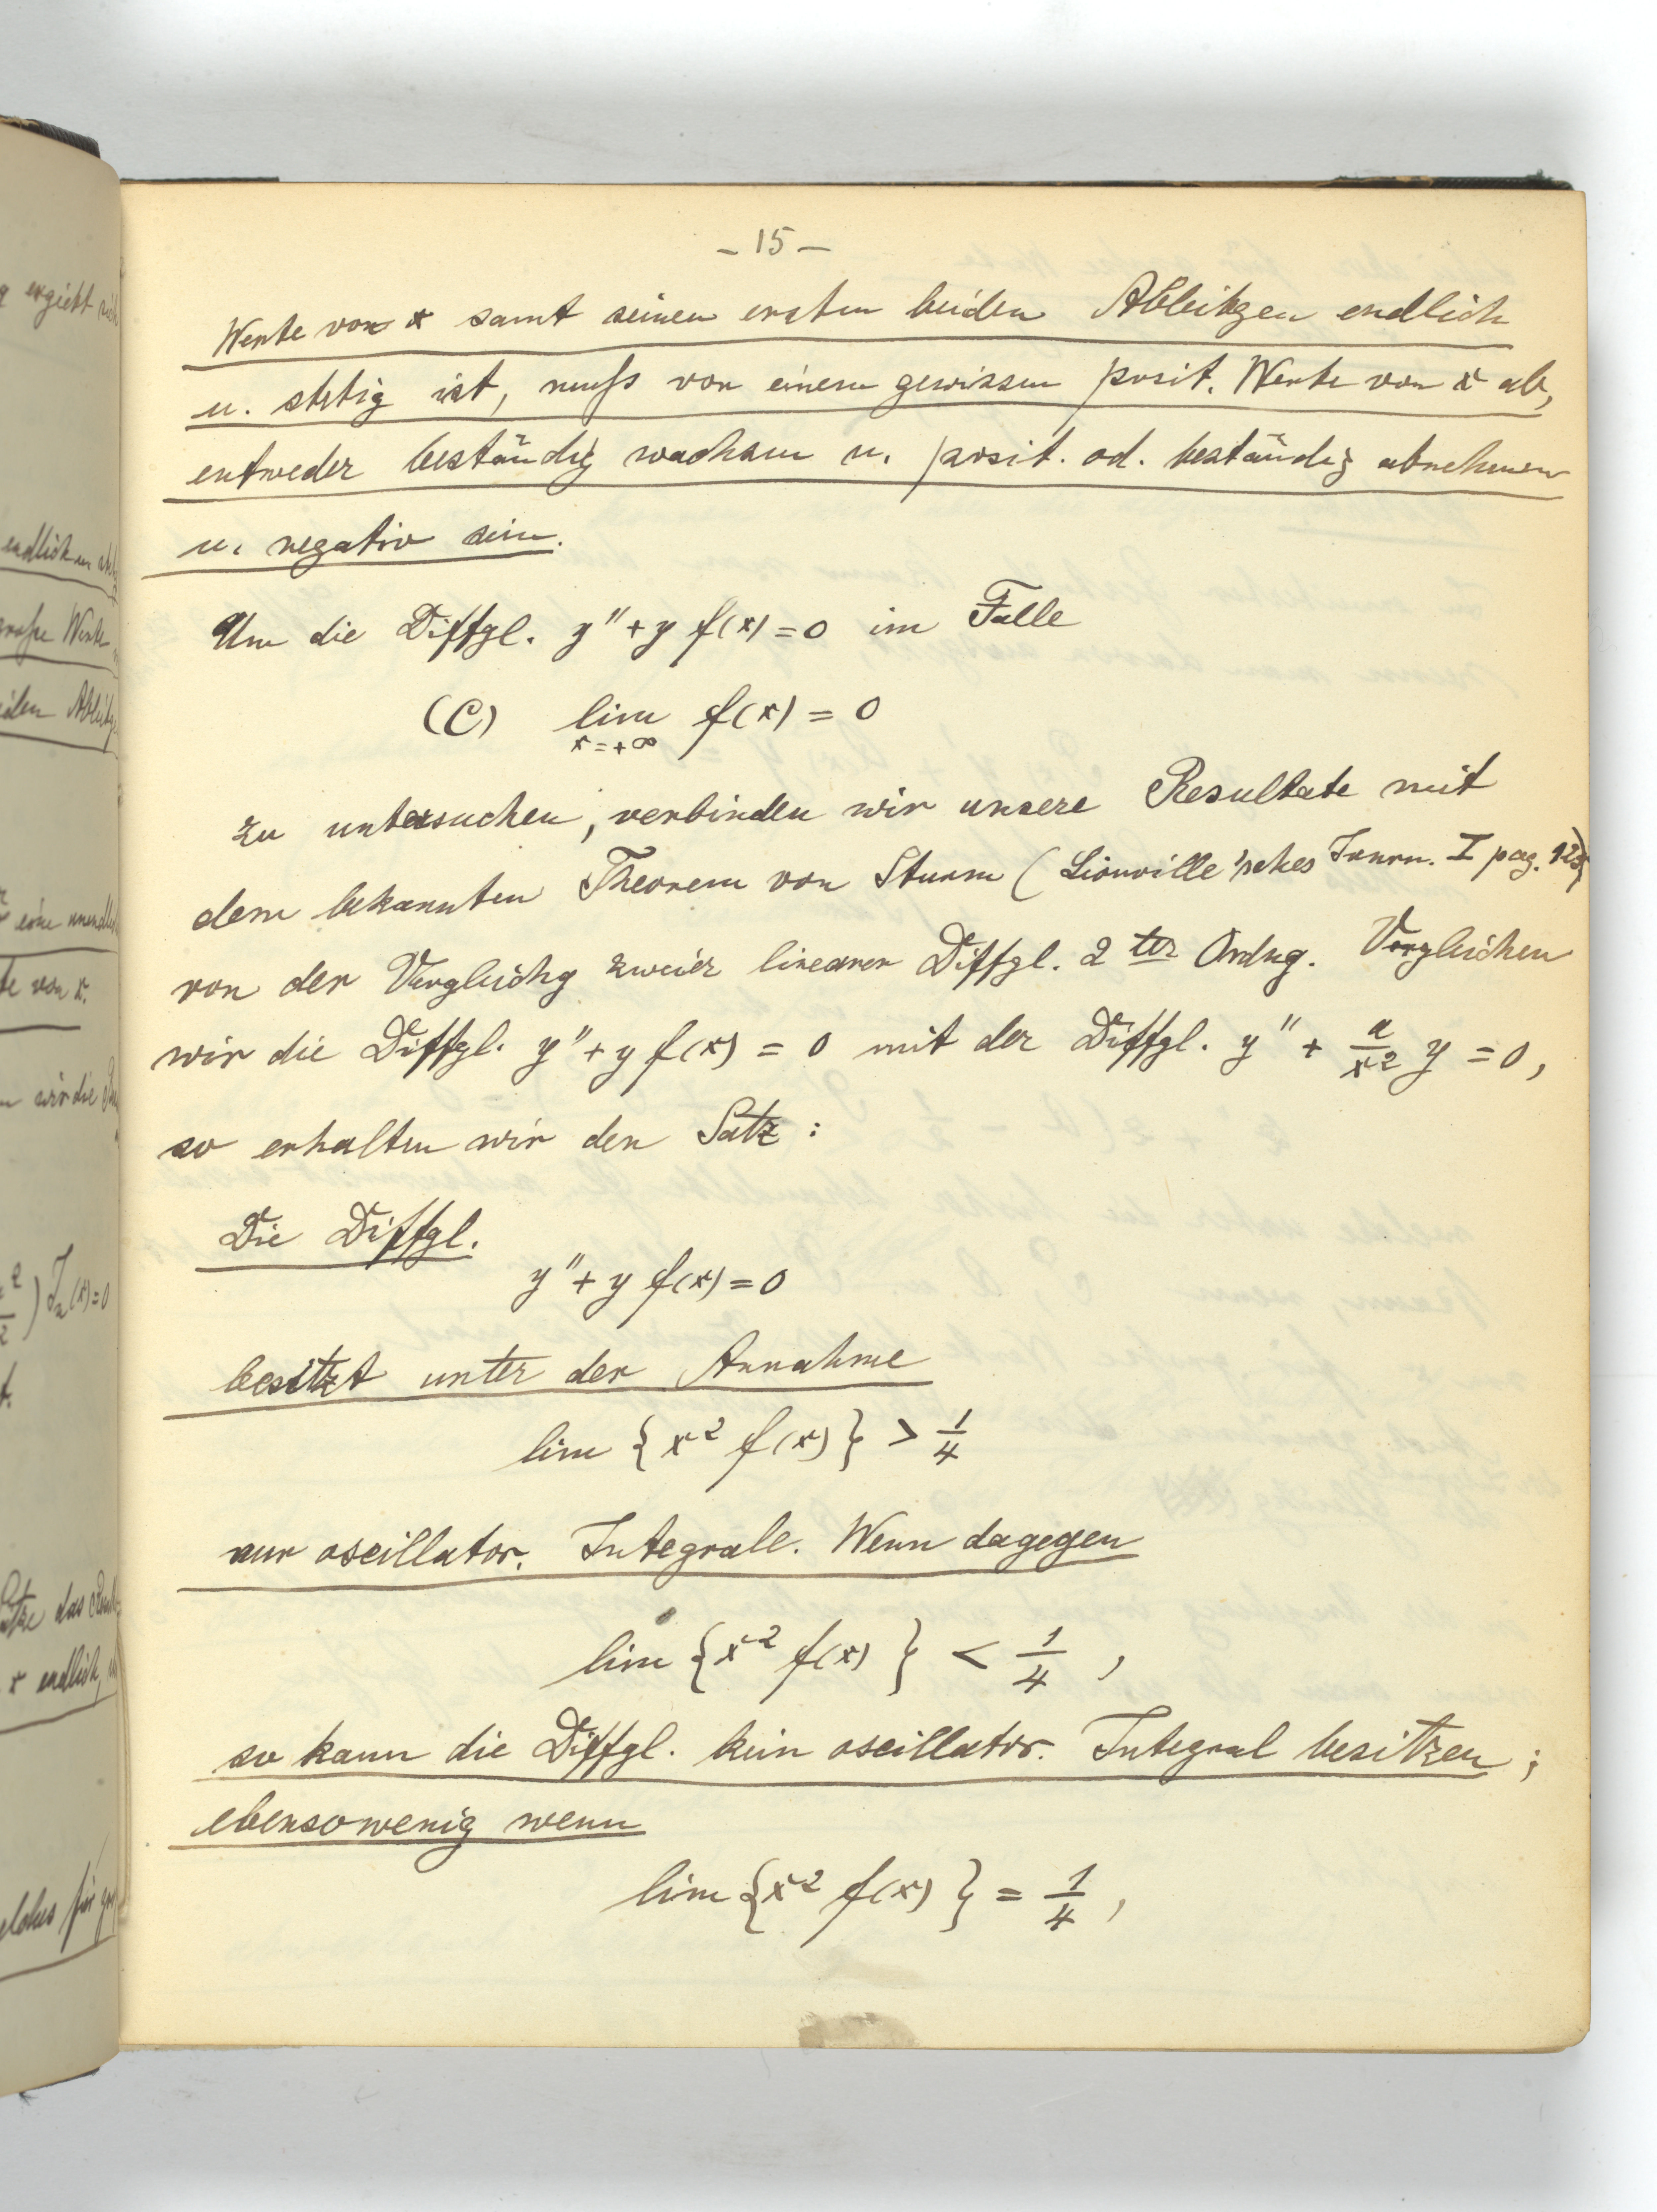 - 15 -
Werte von x samt seinen ersten beiden Ableitgen endlich
u. stetig ist, muß von einem gewissen posit. Werte von x ab,
entweder beständig wachsen u. posit. od. beständig abnehmen
u. negativ sein.
Um die Diffgl. y″ + y f(x) = 0 im Falle
(C) lim f(x) = 0
x = + ∞
zu untersuchen, verbinden wir unsere Resultate mit
dem bekannten Theorem von Sturm (Liouville'sches Journ. I pag.
von der Vergleichg zweier linearer Diffgl. 2 ter Ordng. Vergleichen
wir die Diffgl. y″ + y f(x) = 0 mit der Diffgl. y″ + a/x² y = 0,
so erhalten wir den Satz :
Die Diffgl.
y″ + y f(x) = 0
besitzt unter der Annahme
lim { x² f(x) } > 1/4
nur oscillator. Integrale. Wenn dagegen
lim { x² f(x) } < 1/4 ,
so kann die Diffgl. kein oscillator. Integral besitzen ;
ebensowenig wenn
lim { x² f(x) } = 1/4 ,